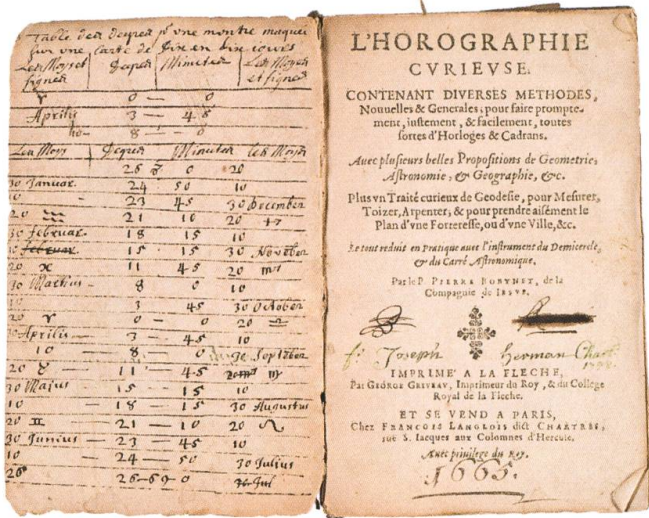 Table des degres pr une montre
sur une Carte de dix en dix iours
Les Moys et degres Minutes Les Moys
signes et signes
♈ 0 — 0
Aprilis 3 — 45
10 8 — 0
Les Moys Degres Minutes les Moys
0 20
30 Januar. 24 50 10
23 45 30 December
20 ♒ 21 10 20 ♐
30 februar. 18 15 10
15 15 30 November
20 ♓ 11 45 20 ♏
10 Martius 8 0 10
3 45 30 October
20 ♈ 0 0 20 ♎
30 Aprilis 3 45 10
10 8 0 30 September
20 ♉ 11 45 ♍
30 Maius 15 15 10
10 18 15 30 Augustus
20 ♊ 21 10 20 ♌
30 Junius 23 45 10
10 24 50 30 Julius
20 0
L'HOROGRAPHIE
CVRIEVSE.
CONTENANT DIVERSES METHODES,
Nouuelles & Generales; pour faire prompte-
ment, iustement, & facilement, toutes
sortes d'Horloges & Cadrans.
Auec plusieurs belles Propositions de Geometrie,
Astronomie, & Geographie, &c.
Plus vn Traité curieux de Geodesie, pour Mesurer,
Toizer, Arpenter, & pour prendre aisément le
Plan d'vne Forteresse, ou d'vne Ville, &c.
Le tout reduit en Pratique auec l'instrument du Demicercle,
& du Carré Astronomique.
Par le P. PIERRE BOBYNET, de la
Compagnie de IESVS.
fr Joseph Herman Chart.
IMPRIME' A LA FLECHE,
Par GEORGE GRIVEAV, Imprimeur du Roy, & du College
Royal de la Fleche.
ET SE VEND A PARIS,
Chez FRANCOIS LANGLOIS dict CHARTRES,
rue S. Iacques aux Colomnes d'Hercule.
Auec priuilege du Roy.
1665.